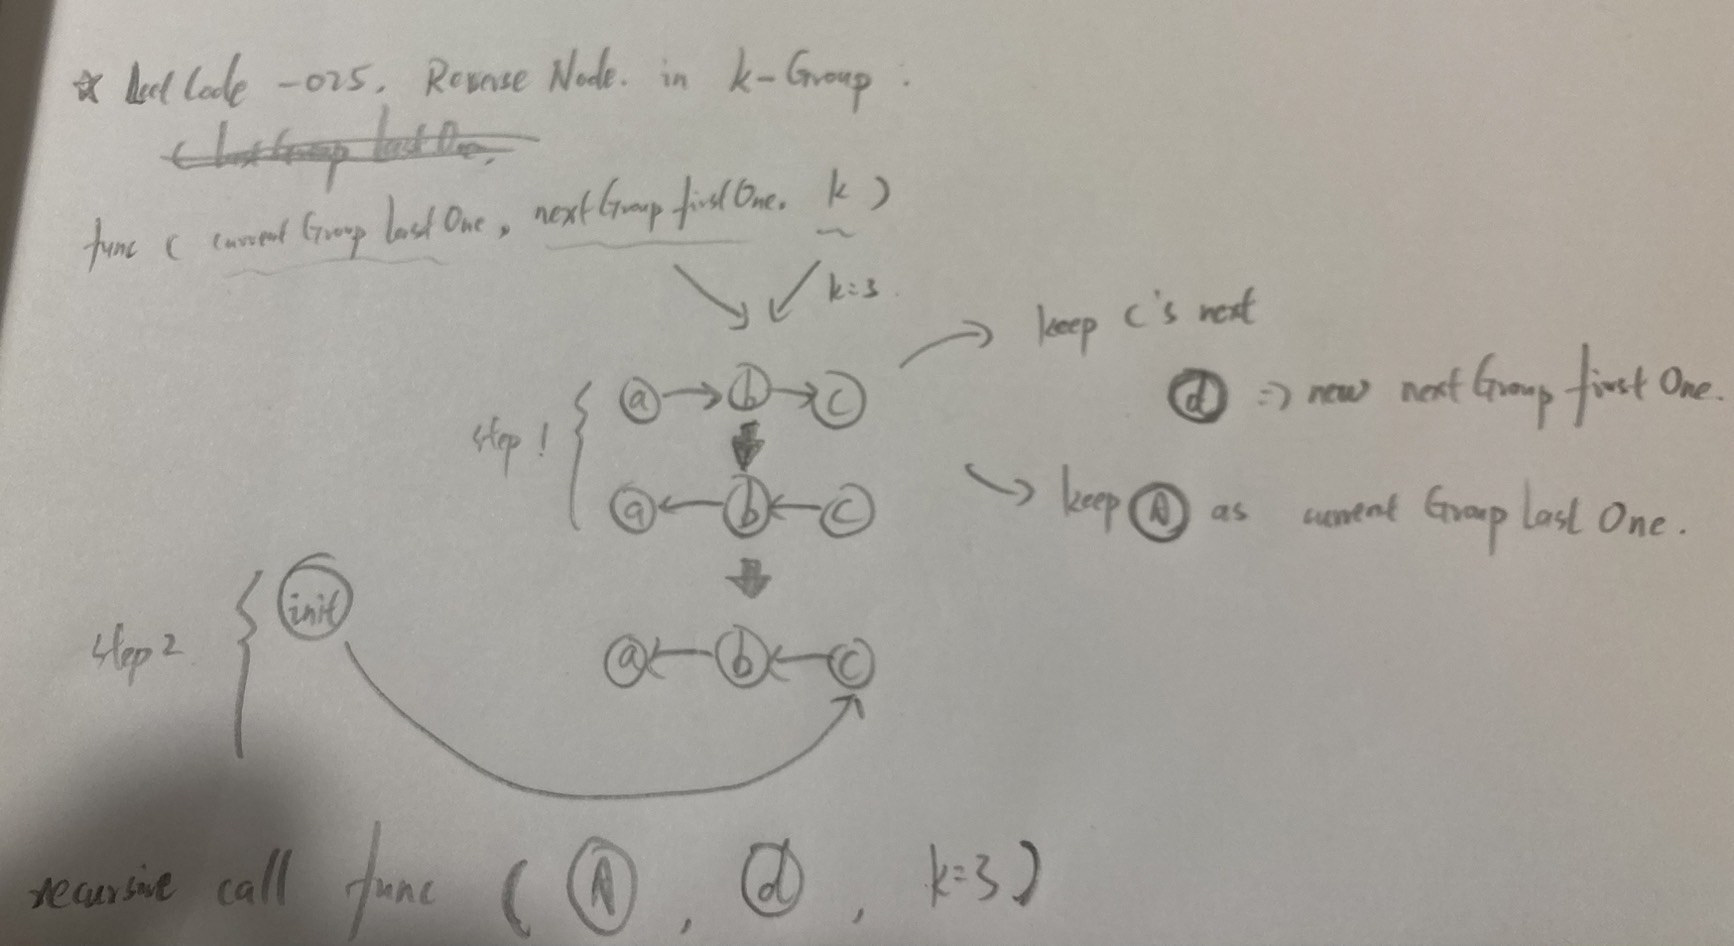 ☆ LeetCode -025. Reverse Node. in k-Group :
( last Group last One,
func ( current Group last One, next Group first One. k )
k=3.
keep c's next
d => new next Group first One.
a → b → c
step 1
keep A as current Group Last One.
a ← b ← c
init
step 2
a ← b ← c
recursive call func ( A , d , k=3 )